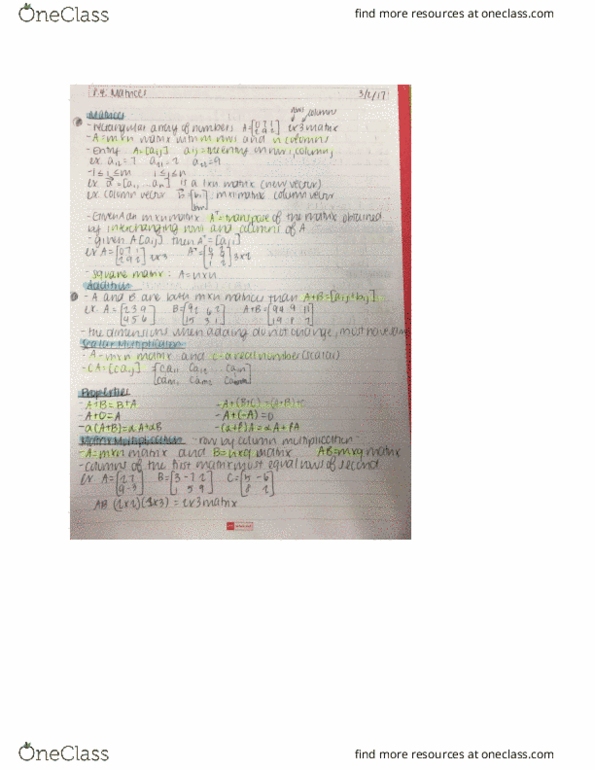 OneClass
find more resources at oneclass.com
P.4: Matrices 3/2/17
Matrices row column
- rectangular array of numbers A=[0 7 1 2 9 2] 2x3 matrix
- A = mxn matrix with m rows and n columns
- Entry A=[aij] aij = the entry in row i, column j
ex. a12=7 a21=2 a22=9
- 1≤i≤m 1≤j≤n
ex. a=[a1, ... an] is a 1xn matrix (row vector)
ex. column vector mx1 matrix column vector
- Given A an mxn matrix. A^T = transpose of the matrix obtained
by interchanging rows and columns of A
- given A[aij] then A^T=[aji]
ex A = 2x3 A^T = 3x2
- square matrix: A=nxn
Addition
- A and B are both mxn matrices than A+B=[aij+bij]
ex. A=[2 3 9 4 5 6] B= A+B=
- the dimensions when adding do not change, must have same
Scalar Multiplication
- A=mxn matrix and c=a real number (scalar)
- CA=[caij]
Properties
- A+B=B+A - A+(B+C)=(A+B)+C
- A+0=A - A+(-A)=0
- α(A+B)=αA+αB - (α+β)A=αA+βA
Matrix Multiplication - row by column multiplication
- A=mxn matrix and B=nxq matrix AB=mxq matrix
- columns of the first matrix must equal rows of second
Ex. A= B=[3 -7 2 1 5 9] C=
AB (2x2)(2x3) = 2x3 matrix
OneClass
find more resources at oneclass.com